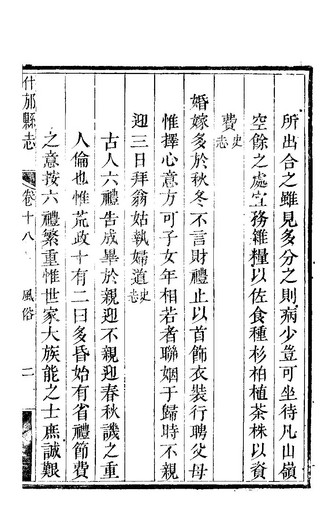 所出合之雖見多分之則病少豈可坐待凡山嶺
空餘之處宜務雜糧以佐食種杉柏植茶株以資
費史志
婚嫁多於秋冬不言財禮止以首飾衣裝行聘父母
惟擇心意方可子女年相若者聯姻于歸時不親
迎三日拜翁姑執婦道史志
古人六禮告成畢於親迎不親迎春秋譏之重
人倫也惟荒政十有二曰多昏始有省禮節費
之意按六禮繁重惟世家大族能之士庶誠艱
什邡縣志
卷十八
風俗
二